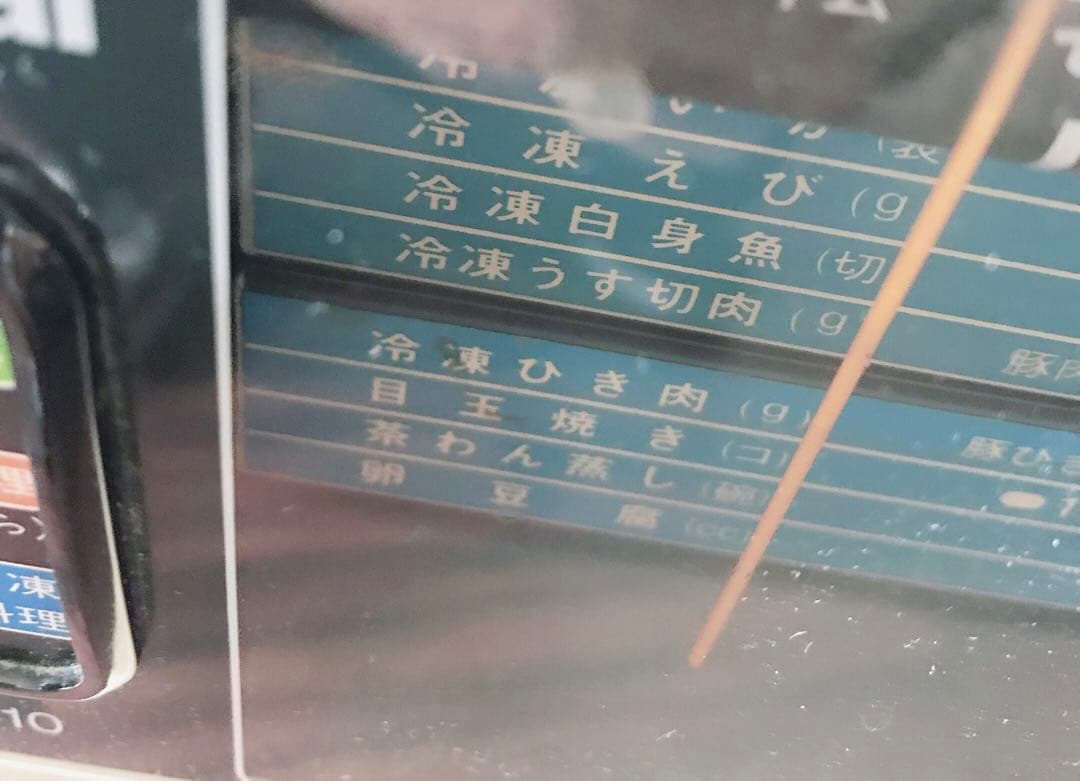 冷凍いか(袋
冷凍えび(g
冷凍白身魚(切
冷凍うす切肉(g 豚肉
冷凍ひき肉(g) 豚ひき
目玉焼き(コ)
茶わん蒸し(碗)
卵豆腐(cc)
凍
料理
10